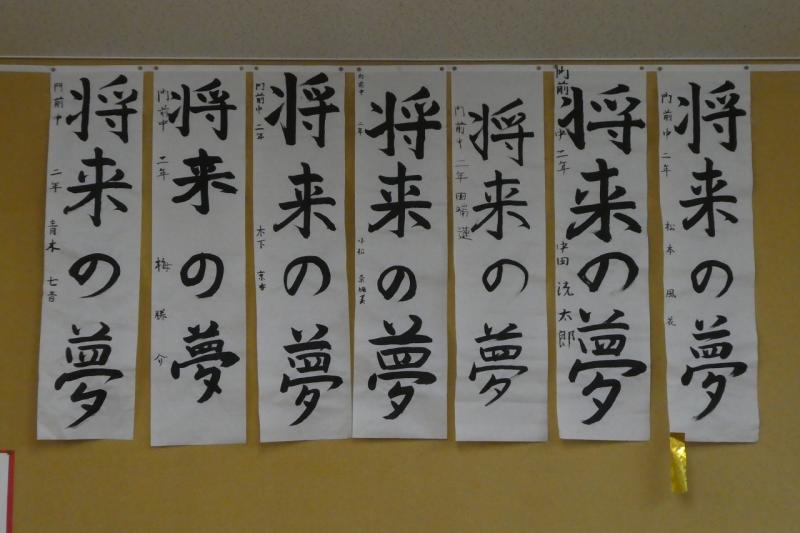 将来の夢
門前中 二年 青木 七音
将来の夢
門前中 二年 梅 勝介
将来の夢
門前中 二年 木下
将来の夢
門前中 二年 小松
将来の夢
門前中 二年 田端 蓮
将来の夢
門前中 二年 中田 流太郎
将来の夢
門前中 二年 松本 風花